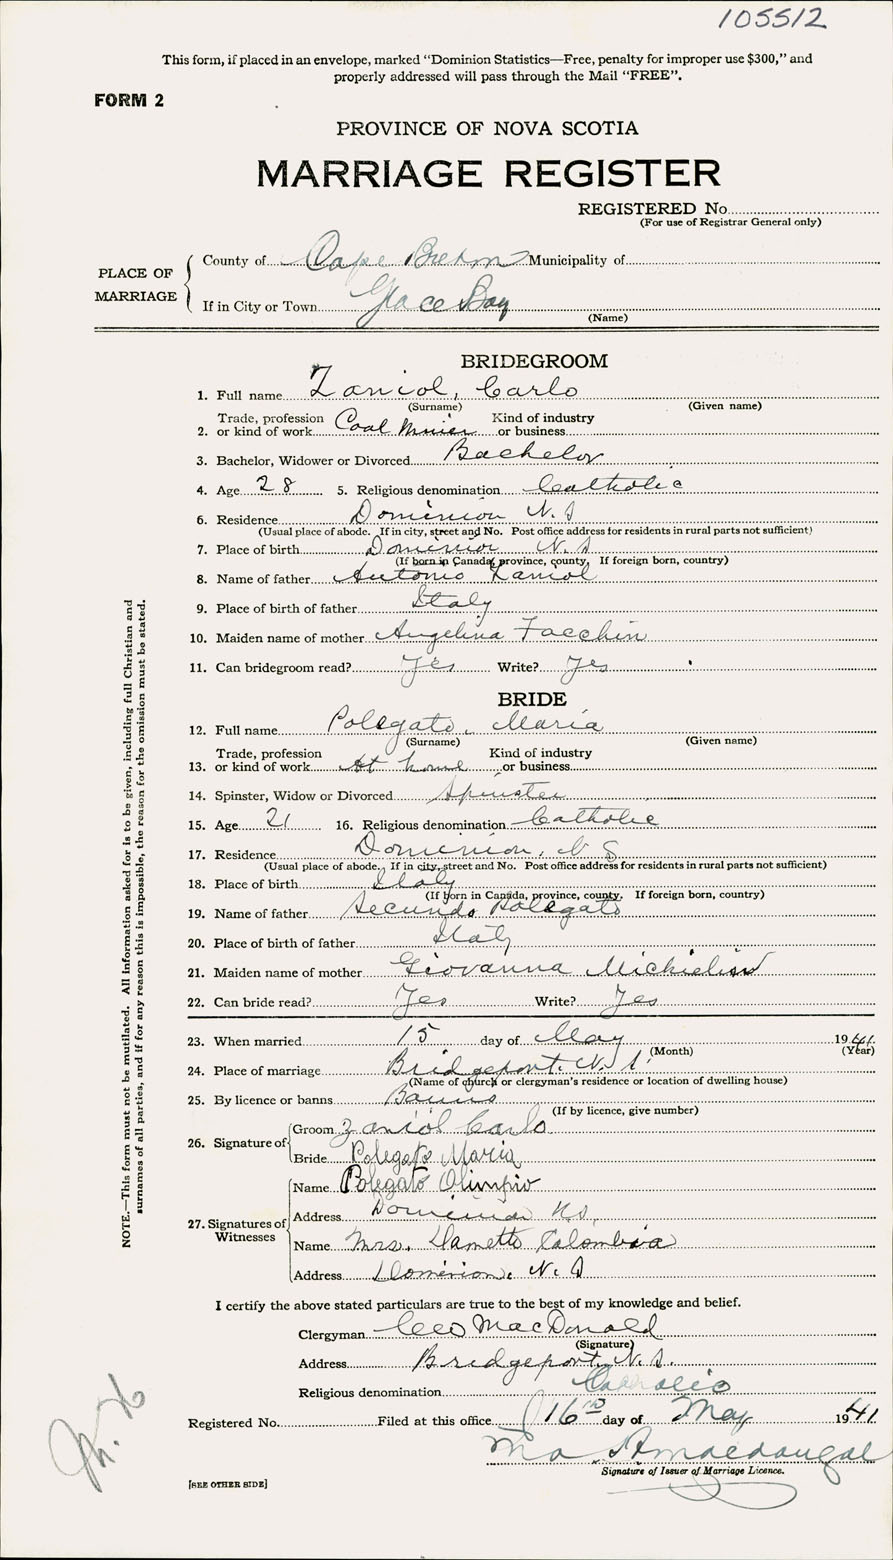 105512
This form, if placed in an envelope, marked “Dominion Statistics—Free, penalty for improper use $300,” and
properly addressed will pass through the Mail “FREE”.
FORM 2
PROVINCE OF NOVA SCOTIA
MARRIAGE REGISTER
REGISTERED No.
(For use of Registrar General only)
PLACE OF MARRIAGE
County of Cape Breton Municipality of
If in City or Town Glace Bay
(Name)
BRIDEGROOM
1. Full name Zaniol, Carlo
(Surname) (Given name)
2. Trade, profession or kind of work Coal Miner Kind of industry or business
3. Bachelor, Widower or Divorced Bachelor
4. Age 28 5. Religious denomination Catholic
6. Residence Dominion N.S
(Usual place of abode. If in city, street and No. Post office address for residents in rural parts not sufficient)
7. Place of birth Dominion N.S
(If born in Canada, province, county. If foreign born, country)
8. Name of father Antonio Zaniol
9. Place of birth of father Italy
10. Maiden name of mother Angelina Facchin
11. Can bridegroom read? Yes Write? Yes
BRIDE
12. Full name Polegato, Maria
(Surname) (Given name)
13. Trade, profession or kind of work At home Kind of industry or business
14. Spinster, Widow or Divorced Spinster
15. Age 21 16. Religious denomination Catholic
17. Residence Dominion, N S
(Usual place of abode. If in city, street and No. Post office address for residents in rural parts not sufficient)
18. Place of birth Italy
(If born in Canada, province, county. If foreign born, country)
19. Name of father Secundo Polegato
20. Place of birth of father Italy
21. Maiden name of mother Giovanna
22. Can bride read? Yes Write? Yes
23. When married 15 day of May 1941
(Month) (Year)
24. Place of marriage Bridgeport. N.S.
(Name of church or clergyman’s residence or location of dwelling house)
25. By licence or banns Banns
(If by licence, give number)
26. Signature of
Groom Zaniol Carlo
Bride Polegato Maria
27. Signatures of Witnesses
Name Polegato Olimpio
Address Dominion N.S.
Name Mrs. Colombia
Address Dominion. N.S
I certify the above stated particulars are true to the best of my knowledge and belief.
Clergyman MacDonald
(Signature)
Address Bridgeport, N.S.
Religious denomination Catholic
Registered No. Filed at this office 16 day of May 1941
Signature of Issuer of Marriage Licence.
[SEE OTHER SIDE]
NOTE.—This form must not be mutilated. All information asked for is to be given, including full Christian and
surnames of all parties, and if for any reason this is impossible, the reason for the omission must be stated.